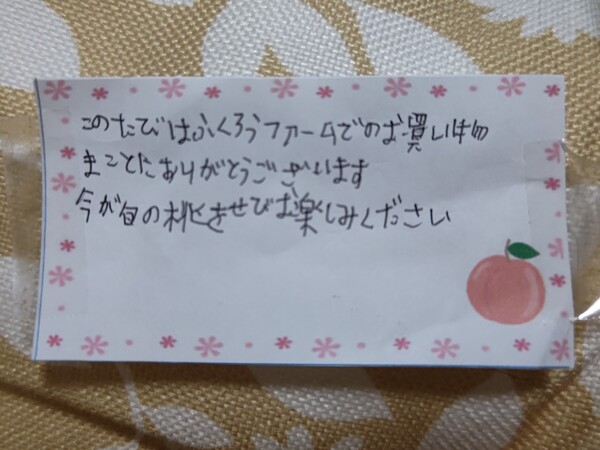 このたびはふくろうファームでのお買い物
まことにありがとうございます
今が旬の桃をぜひお楽しみください